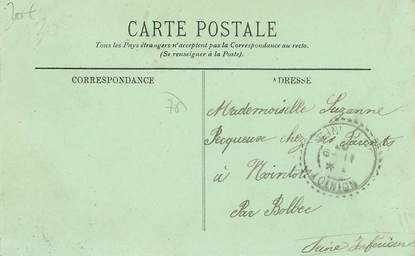 CARTE POSTALE
Tous les Pays étrangers n'acceptent pas la Correspondance au recto.
(Se renseigner à la Poste).
CORRESPONDANCE
ADRESSE
78
Mademoiselle Suzanne
Pecqueux chez ses Parents
à Nointot
Par Bolbec
Seine Inférieure
NOINTOT